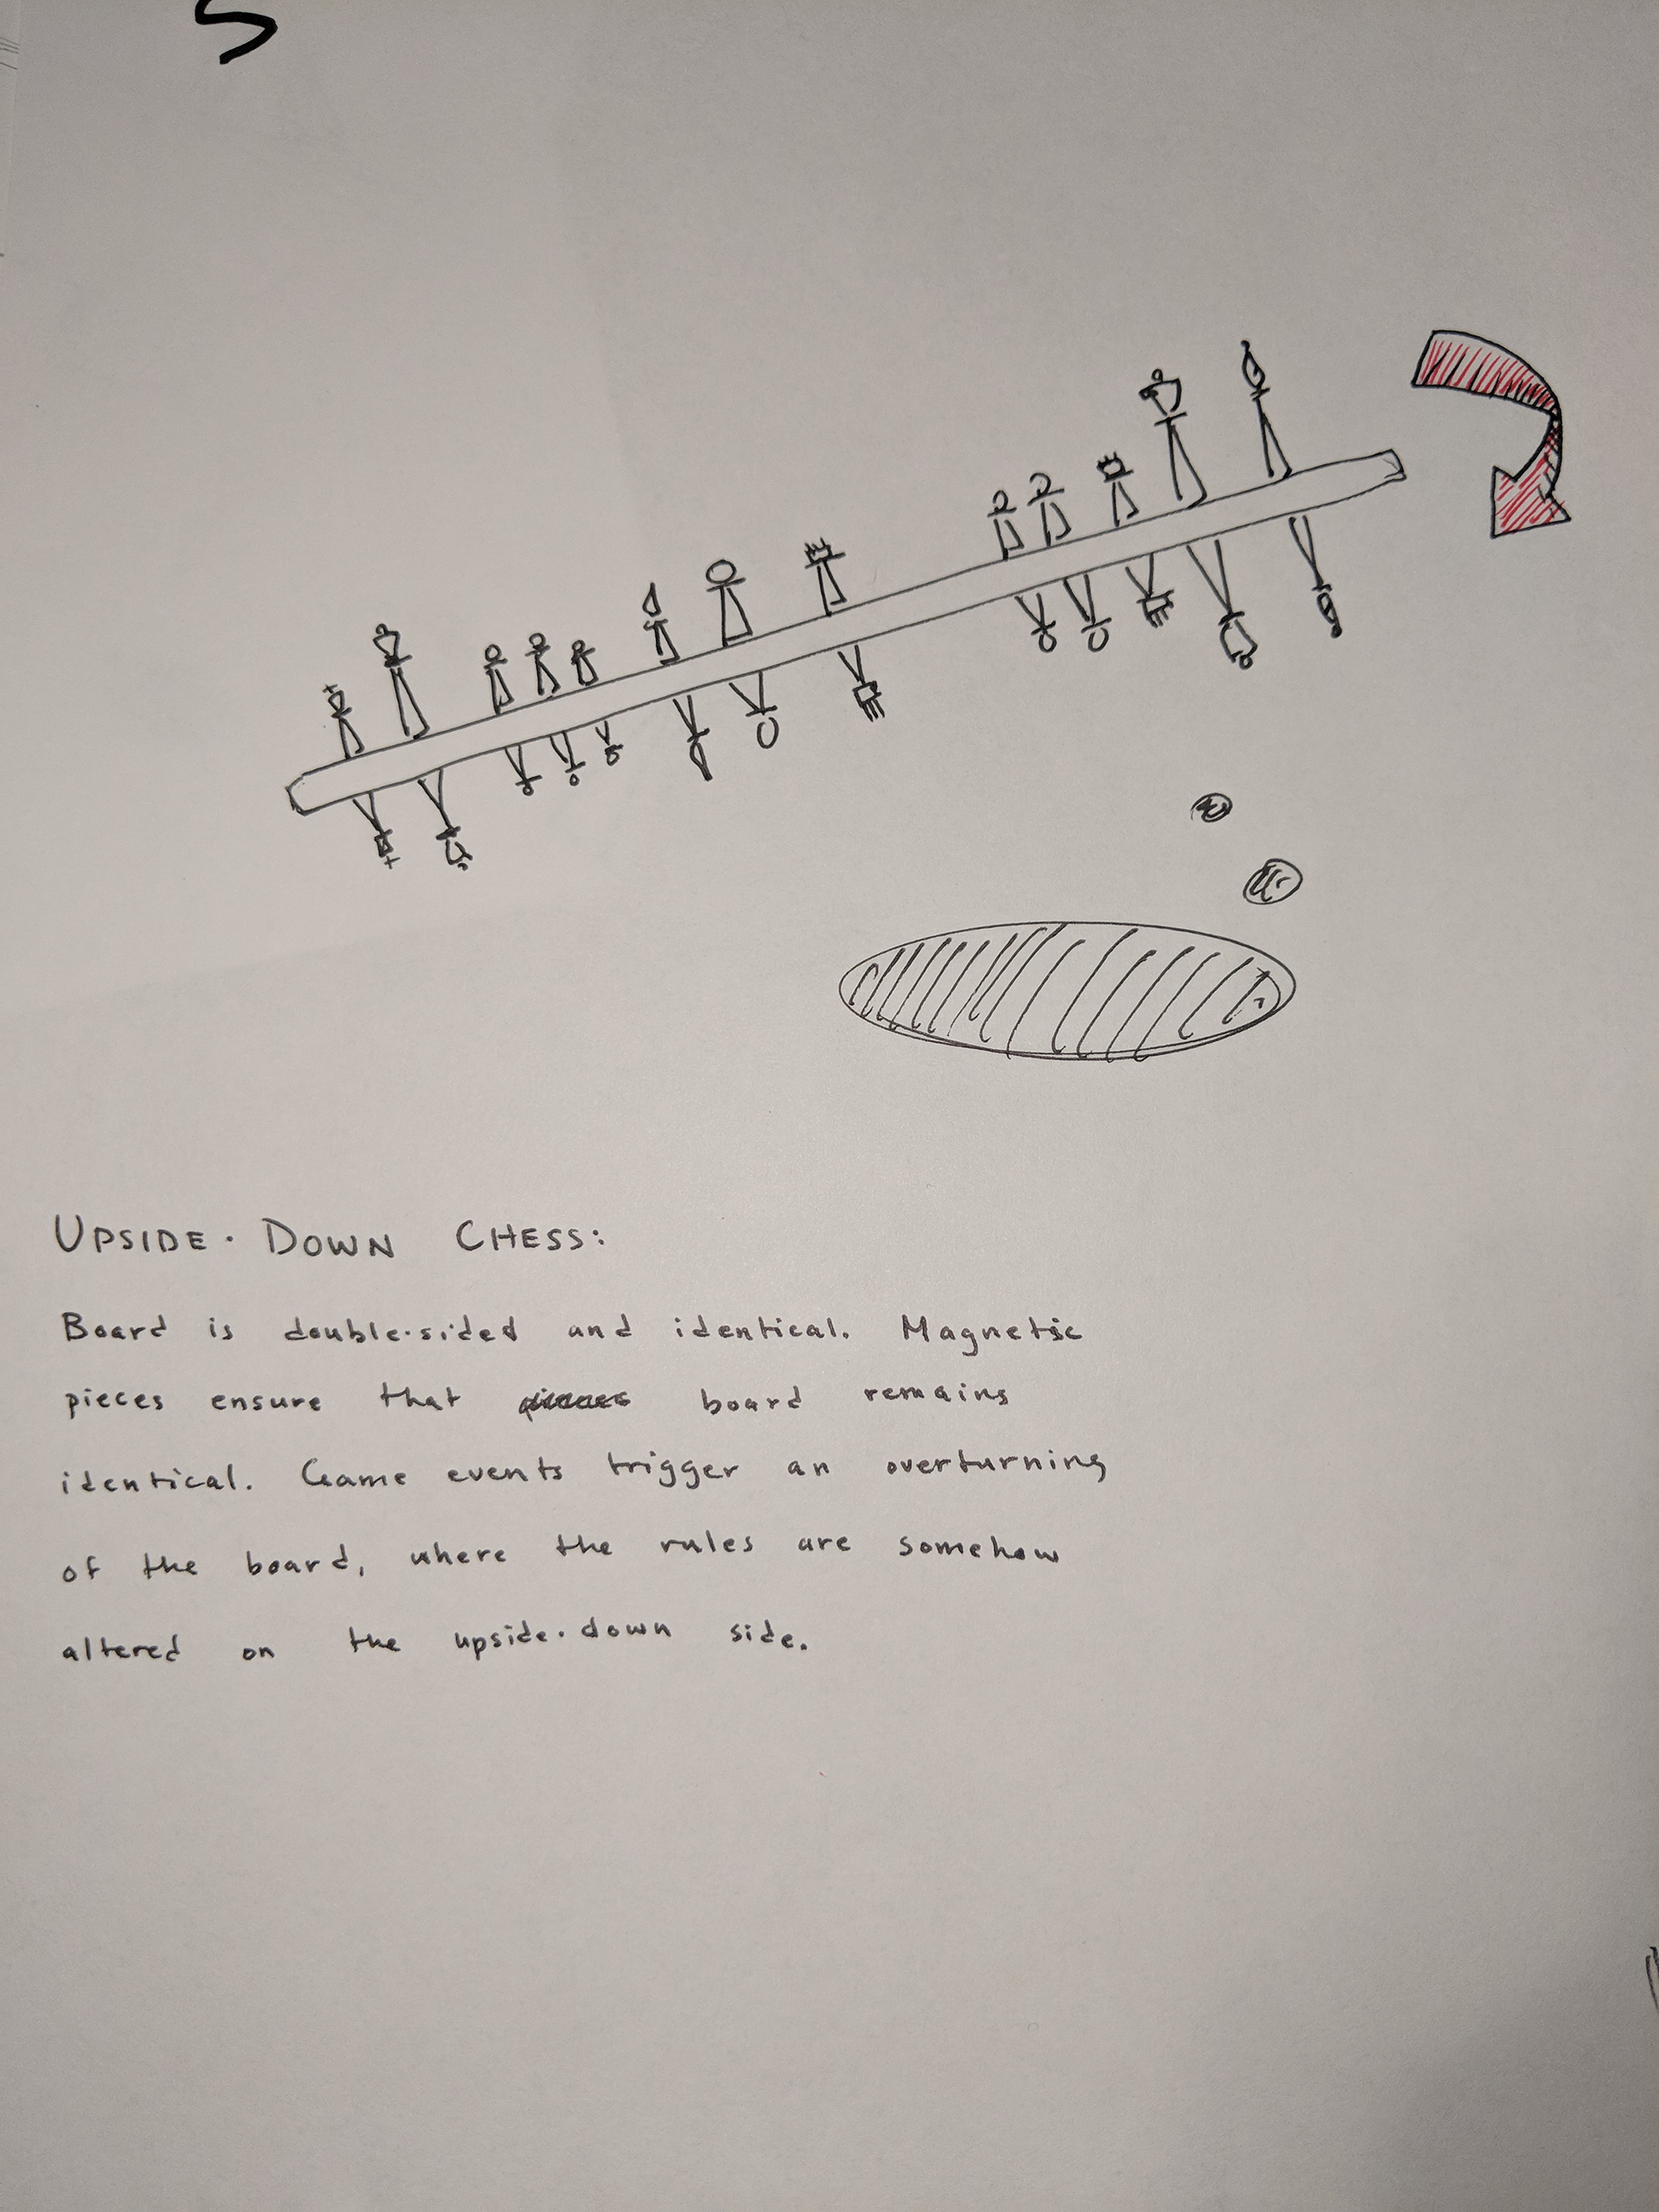 UPSIDE-DOWN CHESS:
Board is double-sided and identical. Magnetic
pieces ensure that board remains
identical. Game events trigger an overturning
of the board, where the rules are somehow
altered on the upside-down side.